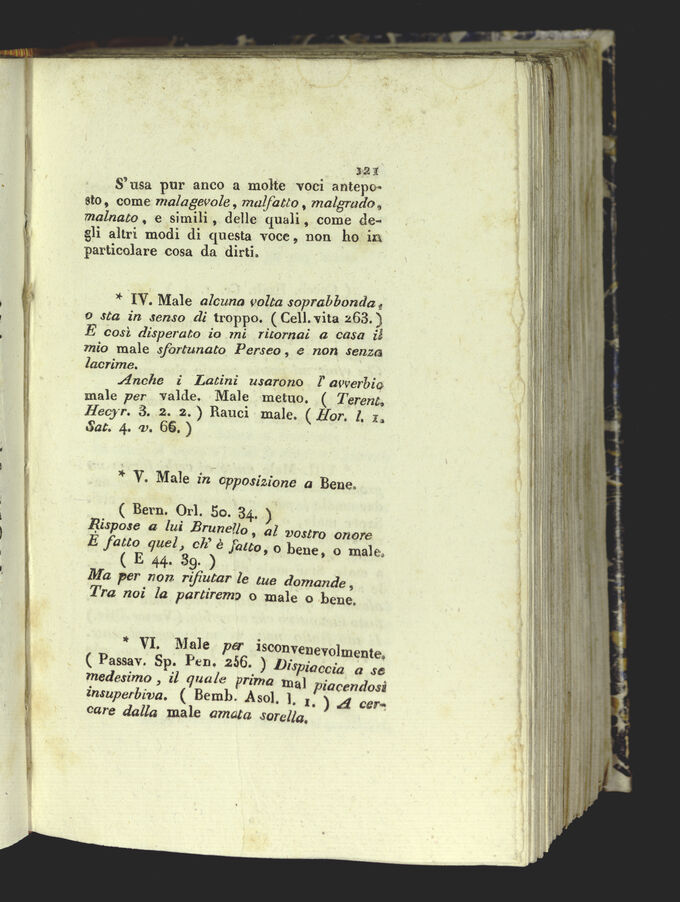 321
S'usa pur anco a molte voci antepo-
sto, come malagevole, malfatto, malgrado,
malnato, e simili, delle quali, come de-
gli altri modi di questa voce, non ho in
particolare cosa da dirti.
* IV. Male alcuna volta soprabbonda,
o sta in senso di troppo. ( Cell. vita 263. )
E così disperato io mi ritornai a casa il
mio male sfortunato Perseo, e non senza
lacrime.
Anche i Latini usarono l'avverbio
male per valde. Male metuo. ( Terent.
Hecyr. 3. 2. 2. ) Rauci male. ( Hor. l. 1.
Sat. 4. v. 66. )
* V. Male in opposizione a Bene.
( Bern. Orl. 50. 34. )
Rispose a lui Brunello, al vostro onore
È fatto quel, ch' è fatto, o bene, o male.
( E 44. 39. )
Ma per non rifiutar le tue domande,
Tra noi la partiremo o male o bene.
* VI. Male per isconvenevolmente.
( Passav. Sp. Pen. 256. ) Dispiaccia a se
medesimo, il quale prima mal piacendosi
insuperbiva. ( Bemb. Asol. l. 1. ) A cer-
care dalla male amata sorella.